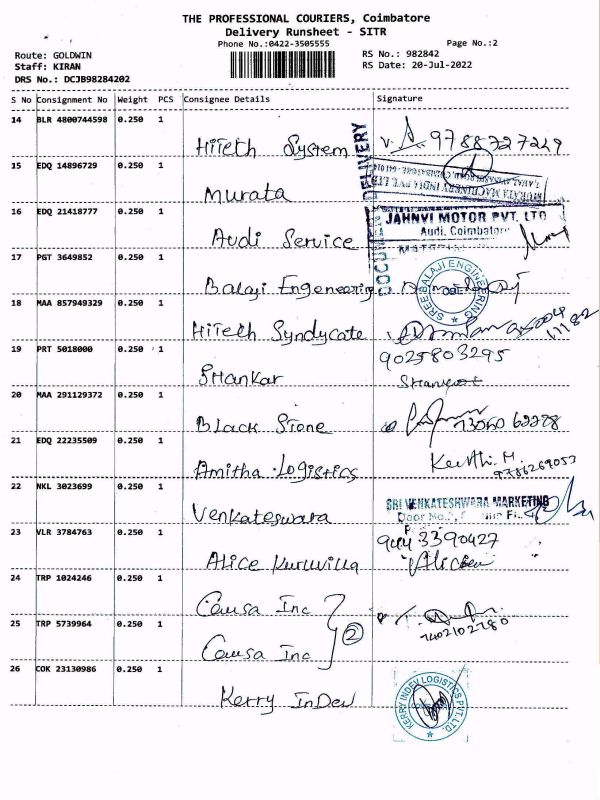 THE PROFESSIONAL COURIERS, Coimbatore
Delivery Runsheet - SITR
Phone No.:0422-3505555
Page No.:2
Route: GOLDWIN
RS No.: 982842
Staff: KIRAN
RS Date: 20-Jul-2022
DRS No.: DCJB98284202
S No Consignment No Weight PCS Consignee Details Signature
14 BLR 4800744598 0.250 1
HiTeth System 9788727249
15 EDQ 14896729 0.250 1
Murata
MURATA MACHINERY INDIA PVT. LTD
16 EDQ 21418777 0.250 1
Audi Service
JAHNVI MOTOR PVT. LTD
Audi, Coimbatore
DELIVERY
17 PGT 3649852 0.250 1
Balaji Engeneering
SREE BALAJI ENGINEERING
CBE
18 MAA 857949329 0.250 1
HiTech Syndycate
19 PRT 5018000 0.250 1
9025803295
SHankar
20 MAA 291129372 0.250 1
Black Stone
21 EDQ 22235509 0.250 1
Amitha Logistics
Keerthi. M.
9786269053
22 NKL 3023699 0.250 1
Venkateswara
SRI VENKATESHWARA MARKETING
23 VLR 3784763 0.250 1
9443390427
Alice Kuruvilla
24 TRP 1024246 0.250 1
Causa Inc
25 TRP 5739964 0.250 1
2
7402102780
Causa Inc
26 COK 23130986 0.250 1
Kerry InDev
KERRY INDEV LOGISTICS PVT. LTD.